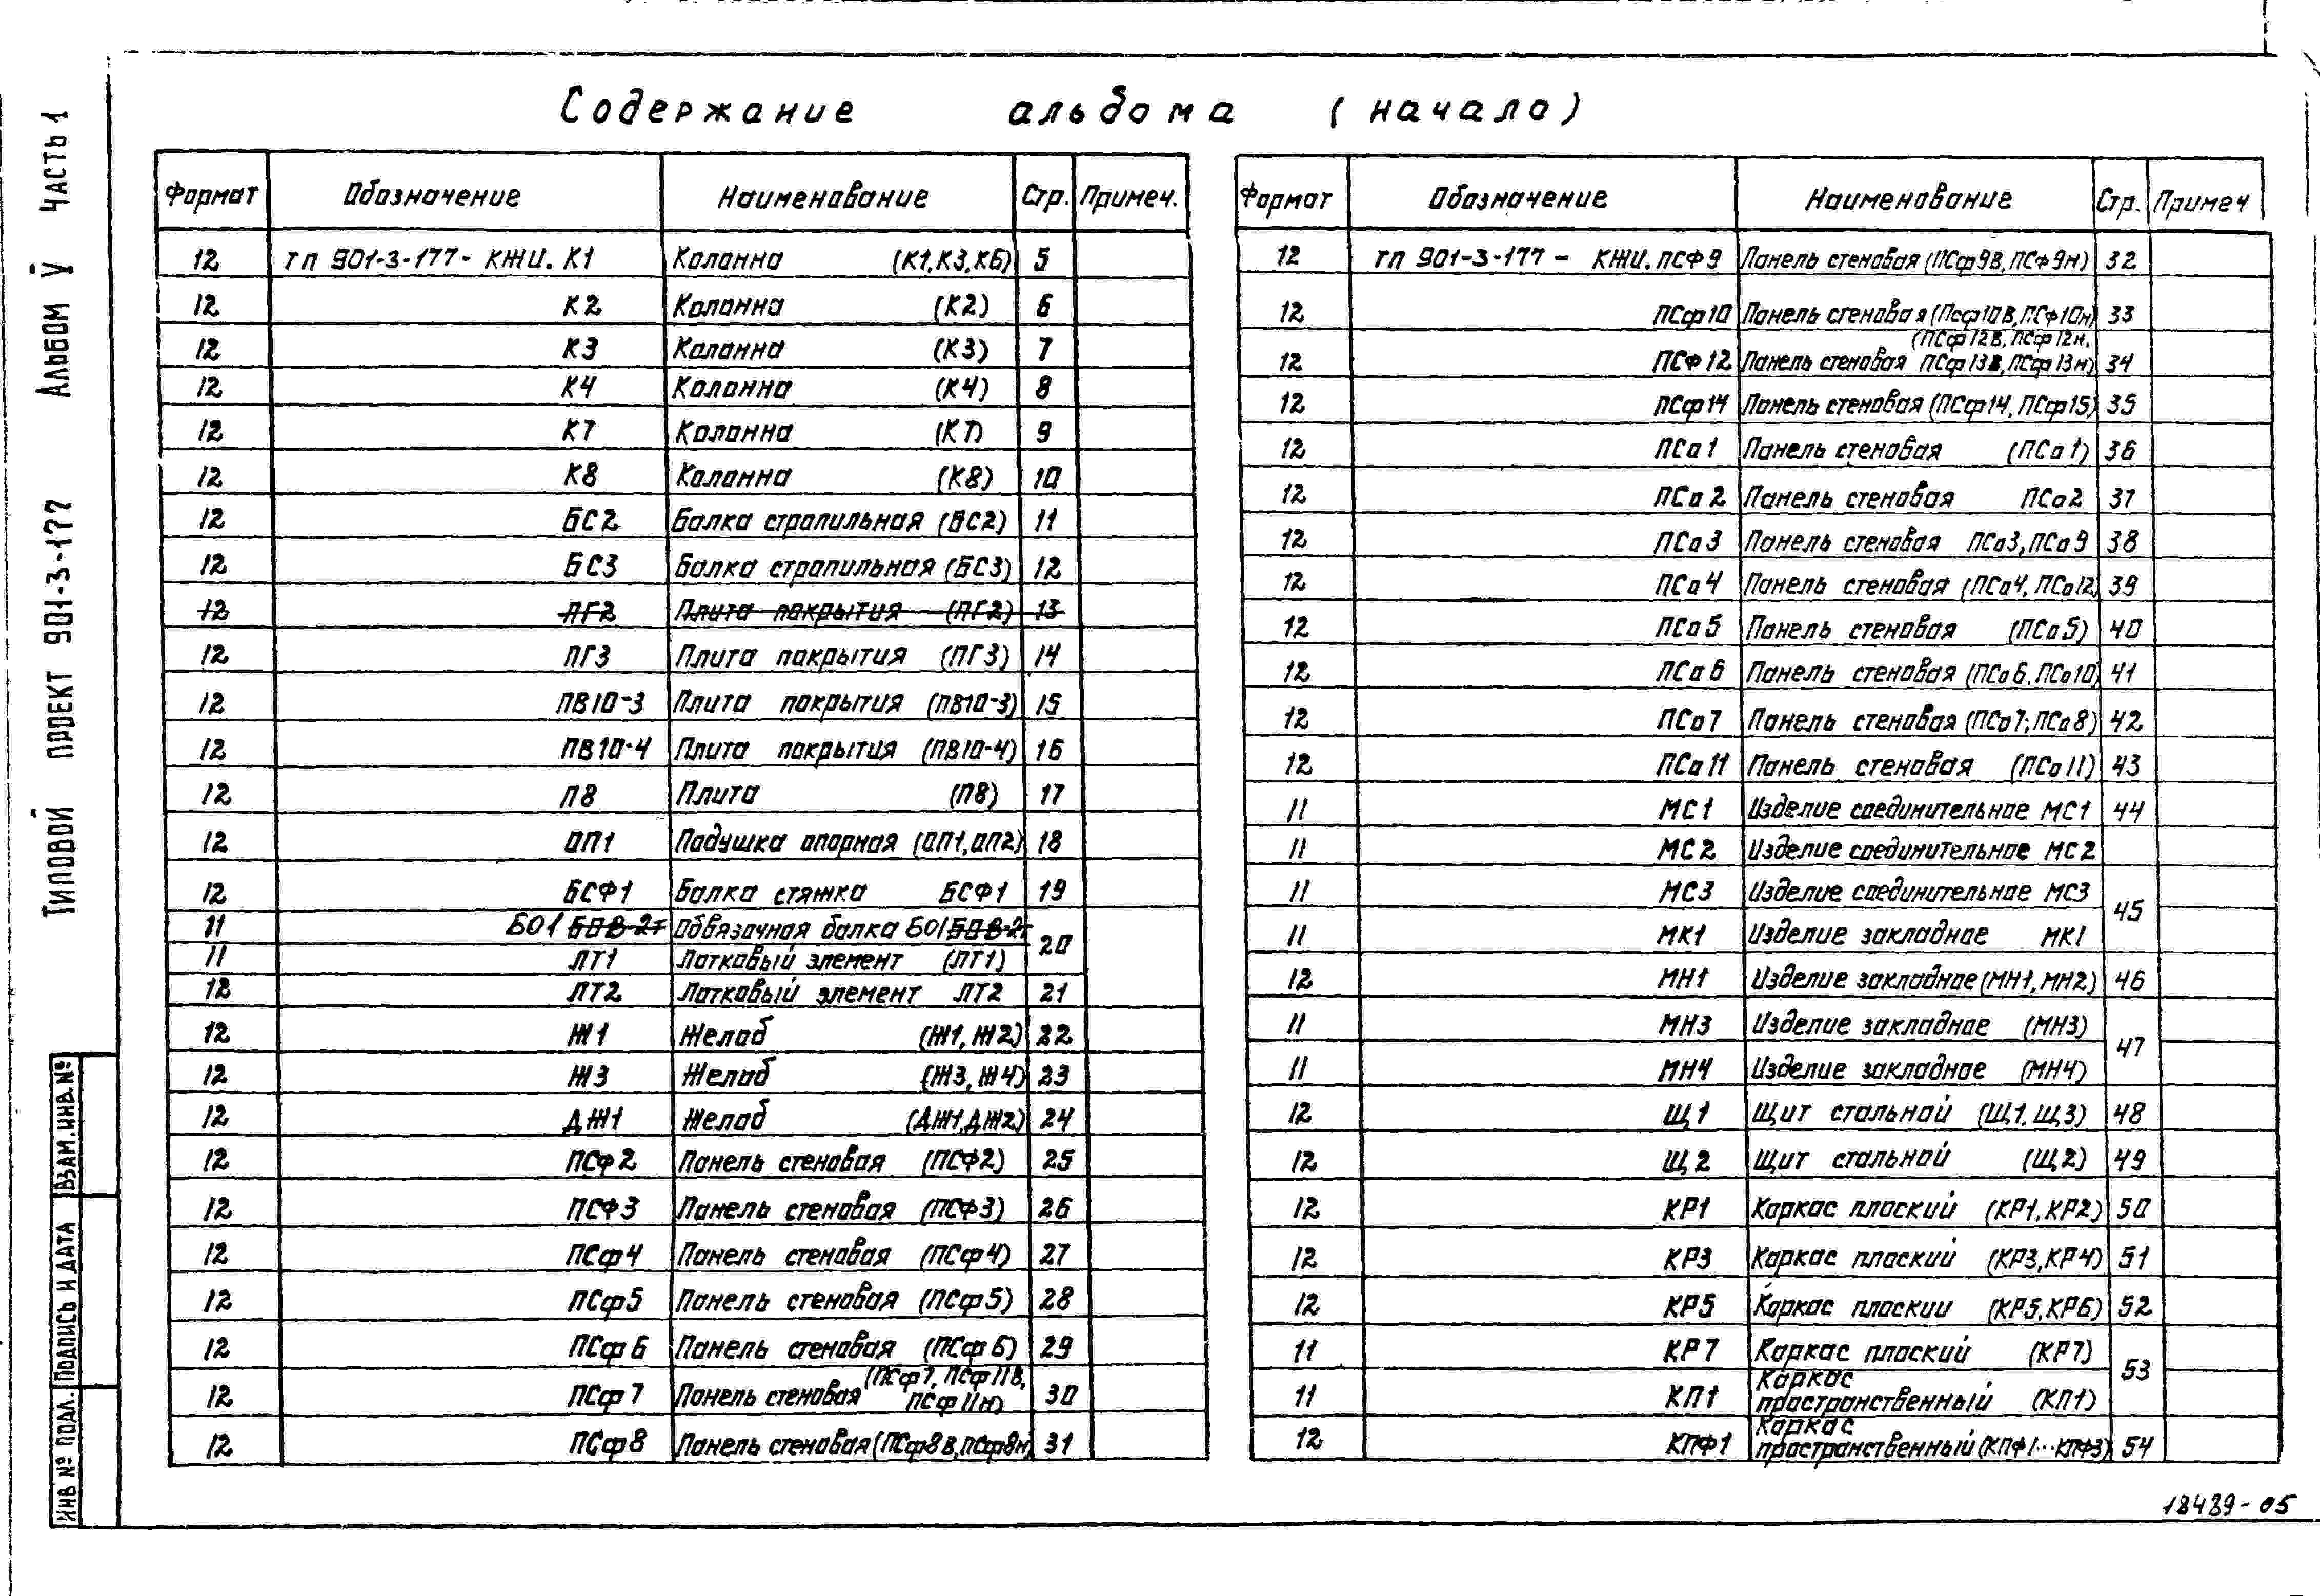 Содержание альбома (начало)
Формат Обозначение Наименование Стр. Примеч.
12 ТП 901-3-177- КЖИ. К1 Колонна (К1, К3, К6) 5
12 К2 Колонна (К2) 6
12 К3 Колонна (К3) 7
12 К4 Колонна (К4) 8
12 К7 Колонна (К7) 9
12 К8 Колонна (К8) 10
12 БС2 Балка стропильная (БС2) 11
12 БС3 Балка стропильная (БС3) 12
12 ПГ2 Плита покрытия (ПГ2) 13
12 ПГ3 Плита покрытия (ПГ3) 14
12 ПВ10-3 Плита покрытия (ПВ10-3) 15
12 ПВ10-4 Плита покрытия (ПВ10-4) 16
12 П8 Плита (П8) 17
12 ОП1 Подушка опорная (ОП1, ОП2) 18
12 БСФ1 Балка стяжка БСФ1 19
11 БО1 Обвязочная балка БО1
20
11 ЛТ1 Лотковый элемент (ЛТ1)
12 ЛТ2 Лотковый элемент ЛТ2 21
12 Ж1 Желоб (Ж1, Ж2) 22
12 Ж3 Желоб (Ж3, Ж4) 23
12 ДЖ1 Желоб (ДЖ1, ДЖ2) 24
12 ПСФ2 Панель стеновая (ПСФ2) 25
12 ПСФ3 Панель стеновая (ПСФ3) 26
12 ПСф4 Панель стеновая (ПСф4) 27
12 ПСф5 Панель стеновая (ПСф5) 28
12 ПСф6 Панель стеновая (ПСф6) 29
(ПСф7, ПСф11В,
12 ПСф7 Панель стеновая ПСф11н) 30
12 ПСф8 Панель стеновая (ПСф8В, ПСф8н) 31
Формат Обозначение Наименование Стр. Примеч
12 ТП 901-3-177 - КЖИ. ПСФ9 Панель стеновая (ПСф9В, ПСФ9н) 32
12 ПСф10 Панель стеновая (ПСф10В, ПСф10н) 33
(ПСф12В, ПСф12н,
12 ПСФ12 Панель стеновая ПСф13В, ПСф13н) 34
12 ПСф14 Панель стеновая (ПСф14, ПСф15) 35
12 ПСа1 Панель стеновая (ПСа1) 36
12 ПСа2 Панель стеновая ПСа2 37
12 ПСа3 Панель стеновая ПСа3, ПСа9 38
12 ПСа4 Панель стеновая (ПСа4, ПСа12) 39
12 ПСа5 Панель стеновая (ПСа5) 40
12 ПСа6 Панель стеновая (ПСа6, ПСа10) 41
12 ПСа7 Панель стеновая (ПСа7; ПСа8) 42
12 ПСа11 Панель стеновая (ПСа11) 43
11 МС1 Изделие соединительное МС1 44
11 МС2 Изделие соединительное МС2
11 МС3 Изделие соединительное МС3
45
11 МК1 Изделие закладное МК1
12 МН1 Изделие закладное (МН1, МН2) 46
11 МН3 Изделие закладное (МН3)
47
11 МН4 Изделие закладное (МН4)
12 Щ1 Щит стальной (Щ1, Щ3) 48
12 Щ2 Щит стальной (Щ2) 49
12 КР1 Каркас плоский (КР1, КР2) 50
12 КР3 Каркас плоский (КР3, КР4) 51
12 КР5 Каркас плоский (КР5, КР6) 52
11 КР7 Каркас плоский (КР7)
53
Каркас
11 КП1 пространственный (КП1)
Каркас
12 КПФ1 пространственный (КПФ1...КПФ3) 54
Типовой проект 901-3-177 Альбом V Часть 1
Взам. инв. №
Подпись и дата
Инв № подл.
18439-05